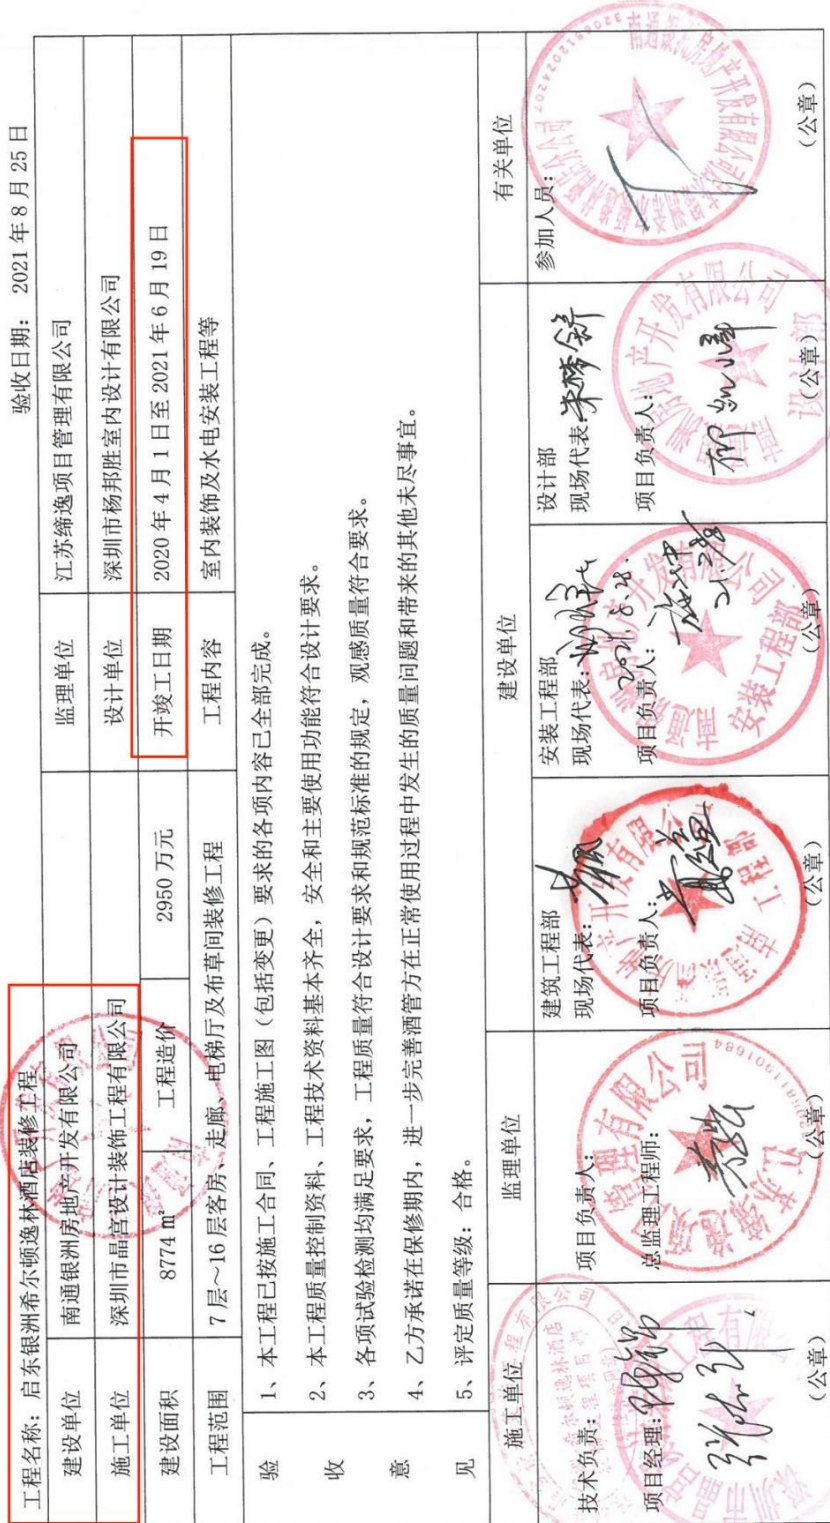 验收日期： 2021年8月25日
工程名称：启东银洲希尔顿逸林酒店装修工程
建设单位 南通银洲房地产开发有限公司 监理单位 江苏缔逸项目管理有限公司
施工单位 深圳市晶宫设计装饰工程有限公司 设计单位 深圳市杨邦胜室内设计有限公司
建设面积 8774 ㎡ 工程造价 2950 万元 开竣工日期 2020年4月1日至2021年6月19日
工程范围 7层～16层客房、走廊、电梯厅及布草间装修工程 工程内容 室内装饰及水电安装工程等
验收意见
1、本工程已按施工合同、工程施工图（包括变更）要求的各项内容已全部完成。
2、本工程质量控制资料、工程技术资料基本齐全，安全和主要使用功能符合设计要求。
3、各项试验检测均满足要求，工程质量符合设计要求和规范标准的规定，观感质量符合要求。
4、乙方承诺在保修期内，进一步完善酒管方在正常使用过程中发生的质量问题和带来的其他未尽事宜。
5、评定质量等级：合格。
施工单位 监理单位 建设单位 有关单位
技术负责：
项目经理：
（公章）
项目负责人：
总监理工程师：
（公章）
建筑工程部
现场代表：
项目负责人：
（公章）
安装工程部
现场代表：
2021.8.28.
项目负责人：
（公章）
设计部
现场代表：
项目负责人：
（公章）
参加人员：
（公章）
管理有限公司
工程部
安装工程部
房地产开发有限公司
设计部
3206812024207